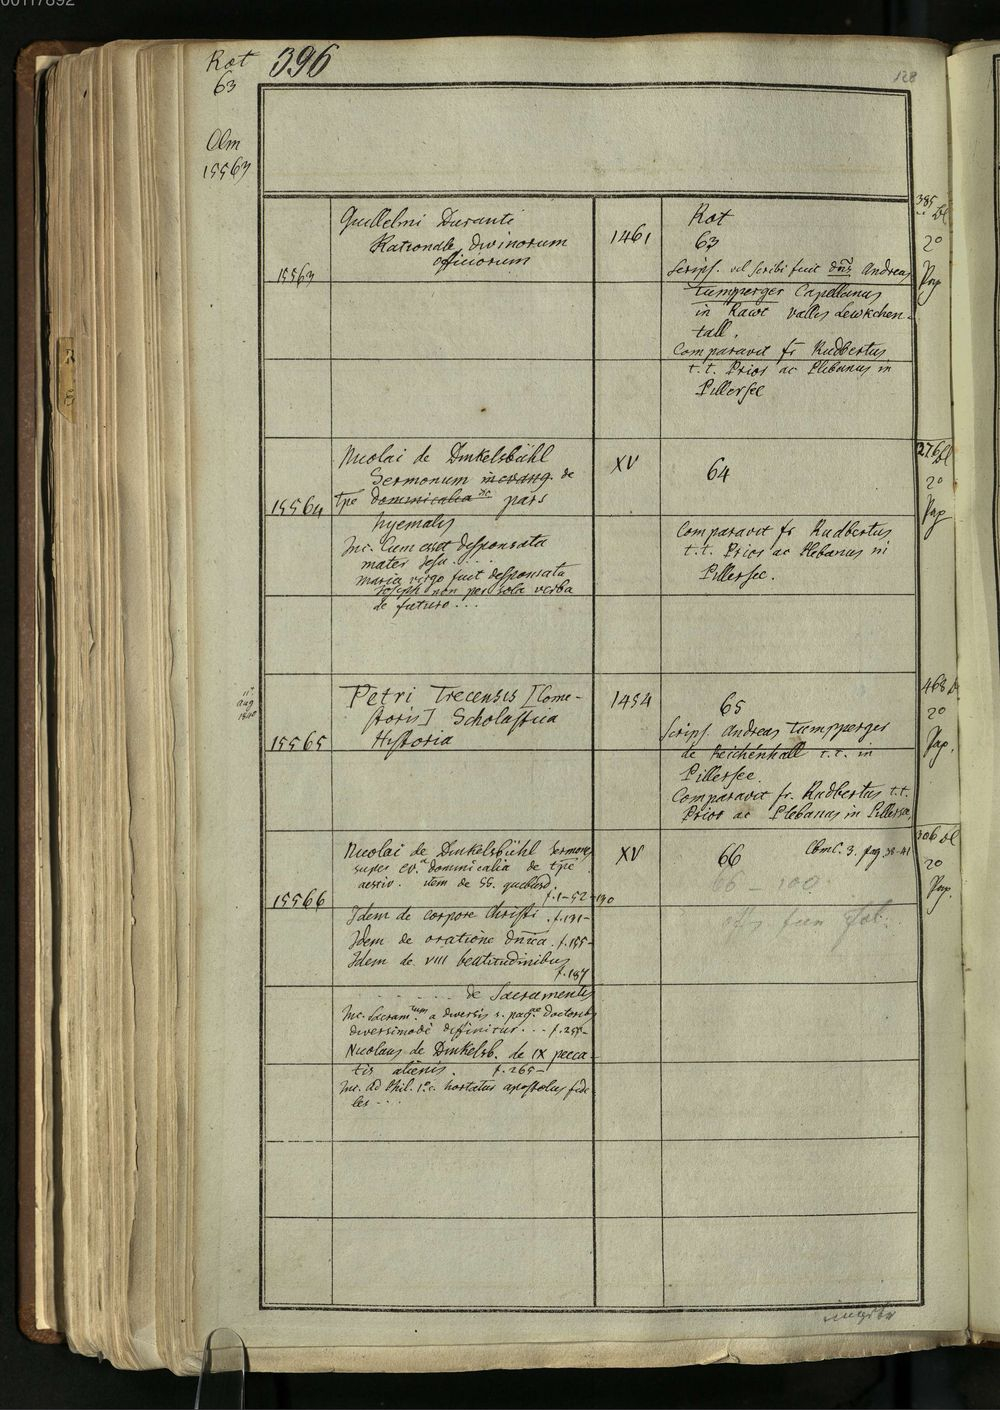 00117892
Rot
63
396
128
Clm
15563
15563
Guillelmi Duranti
Rationale divinorum
officiorum
1461
Rot
63
Scrips. vel scribi fecit dns Andreas
tumperger Capellanus
in Rawt vallis Lewkchen-
tall.
Comparavit fr Rudbertus
t. t. Prior ac Plebanus in
Pillersee
385 Bl
2°
Pap
15564
Nicolai de Dinkelsbühl
Sermonum in evang. de
tpe dominicalia pars
hyemalis
Inc. Cum esset desponsata
mater Jesu...
maria virgo fuit desponsata
Joseph non per sola verba
de futuro...
XV
64
Comparavit fr Rudbertus
t. t. Prior ac Plebanus in
Pillersee.
276 Bl
2°
Pap
aug
1840
15565
Petri Trecensis [Come-
storis] Scholastica
Hystoria
1454
65
Scrips. Andreas tumpperger
de Reichenhall t. t. in
Pillersee.
Comparavit fr. Rudbertus t. t.
Prior ac Plebanus in Pillersee.
468 Bl
2°
Pap.
15566
Nicolai de Dinkelsbühl Sermones
super ev.a dominicalia de tpe
aestiv. item de SS. quibusd.
f. 1-52-130
Idem de corpore Christi. f. 131-
Idem de oratione dnica. f. 155-
Idem de VIII beatitudinibus
f. 187
........ de Sacramentis
Inc. Sacramtum a diversis s. pag.ae Doctoribus
diversimode diffinitur... f. 255-
Nicolaus de Dinkelsb. de IX pecca-
tis alienis. f. 265-
Inc. ad Phil. 1° c. hortatur apostolus fide-
les...
XV
66
Cbml. 3. pag. 38-41
66 - 100
306 Bl
2°
Pap.